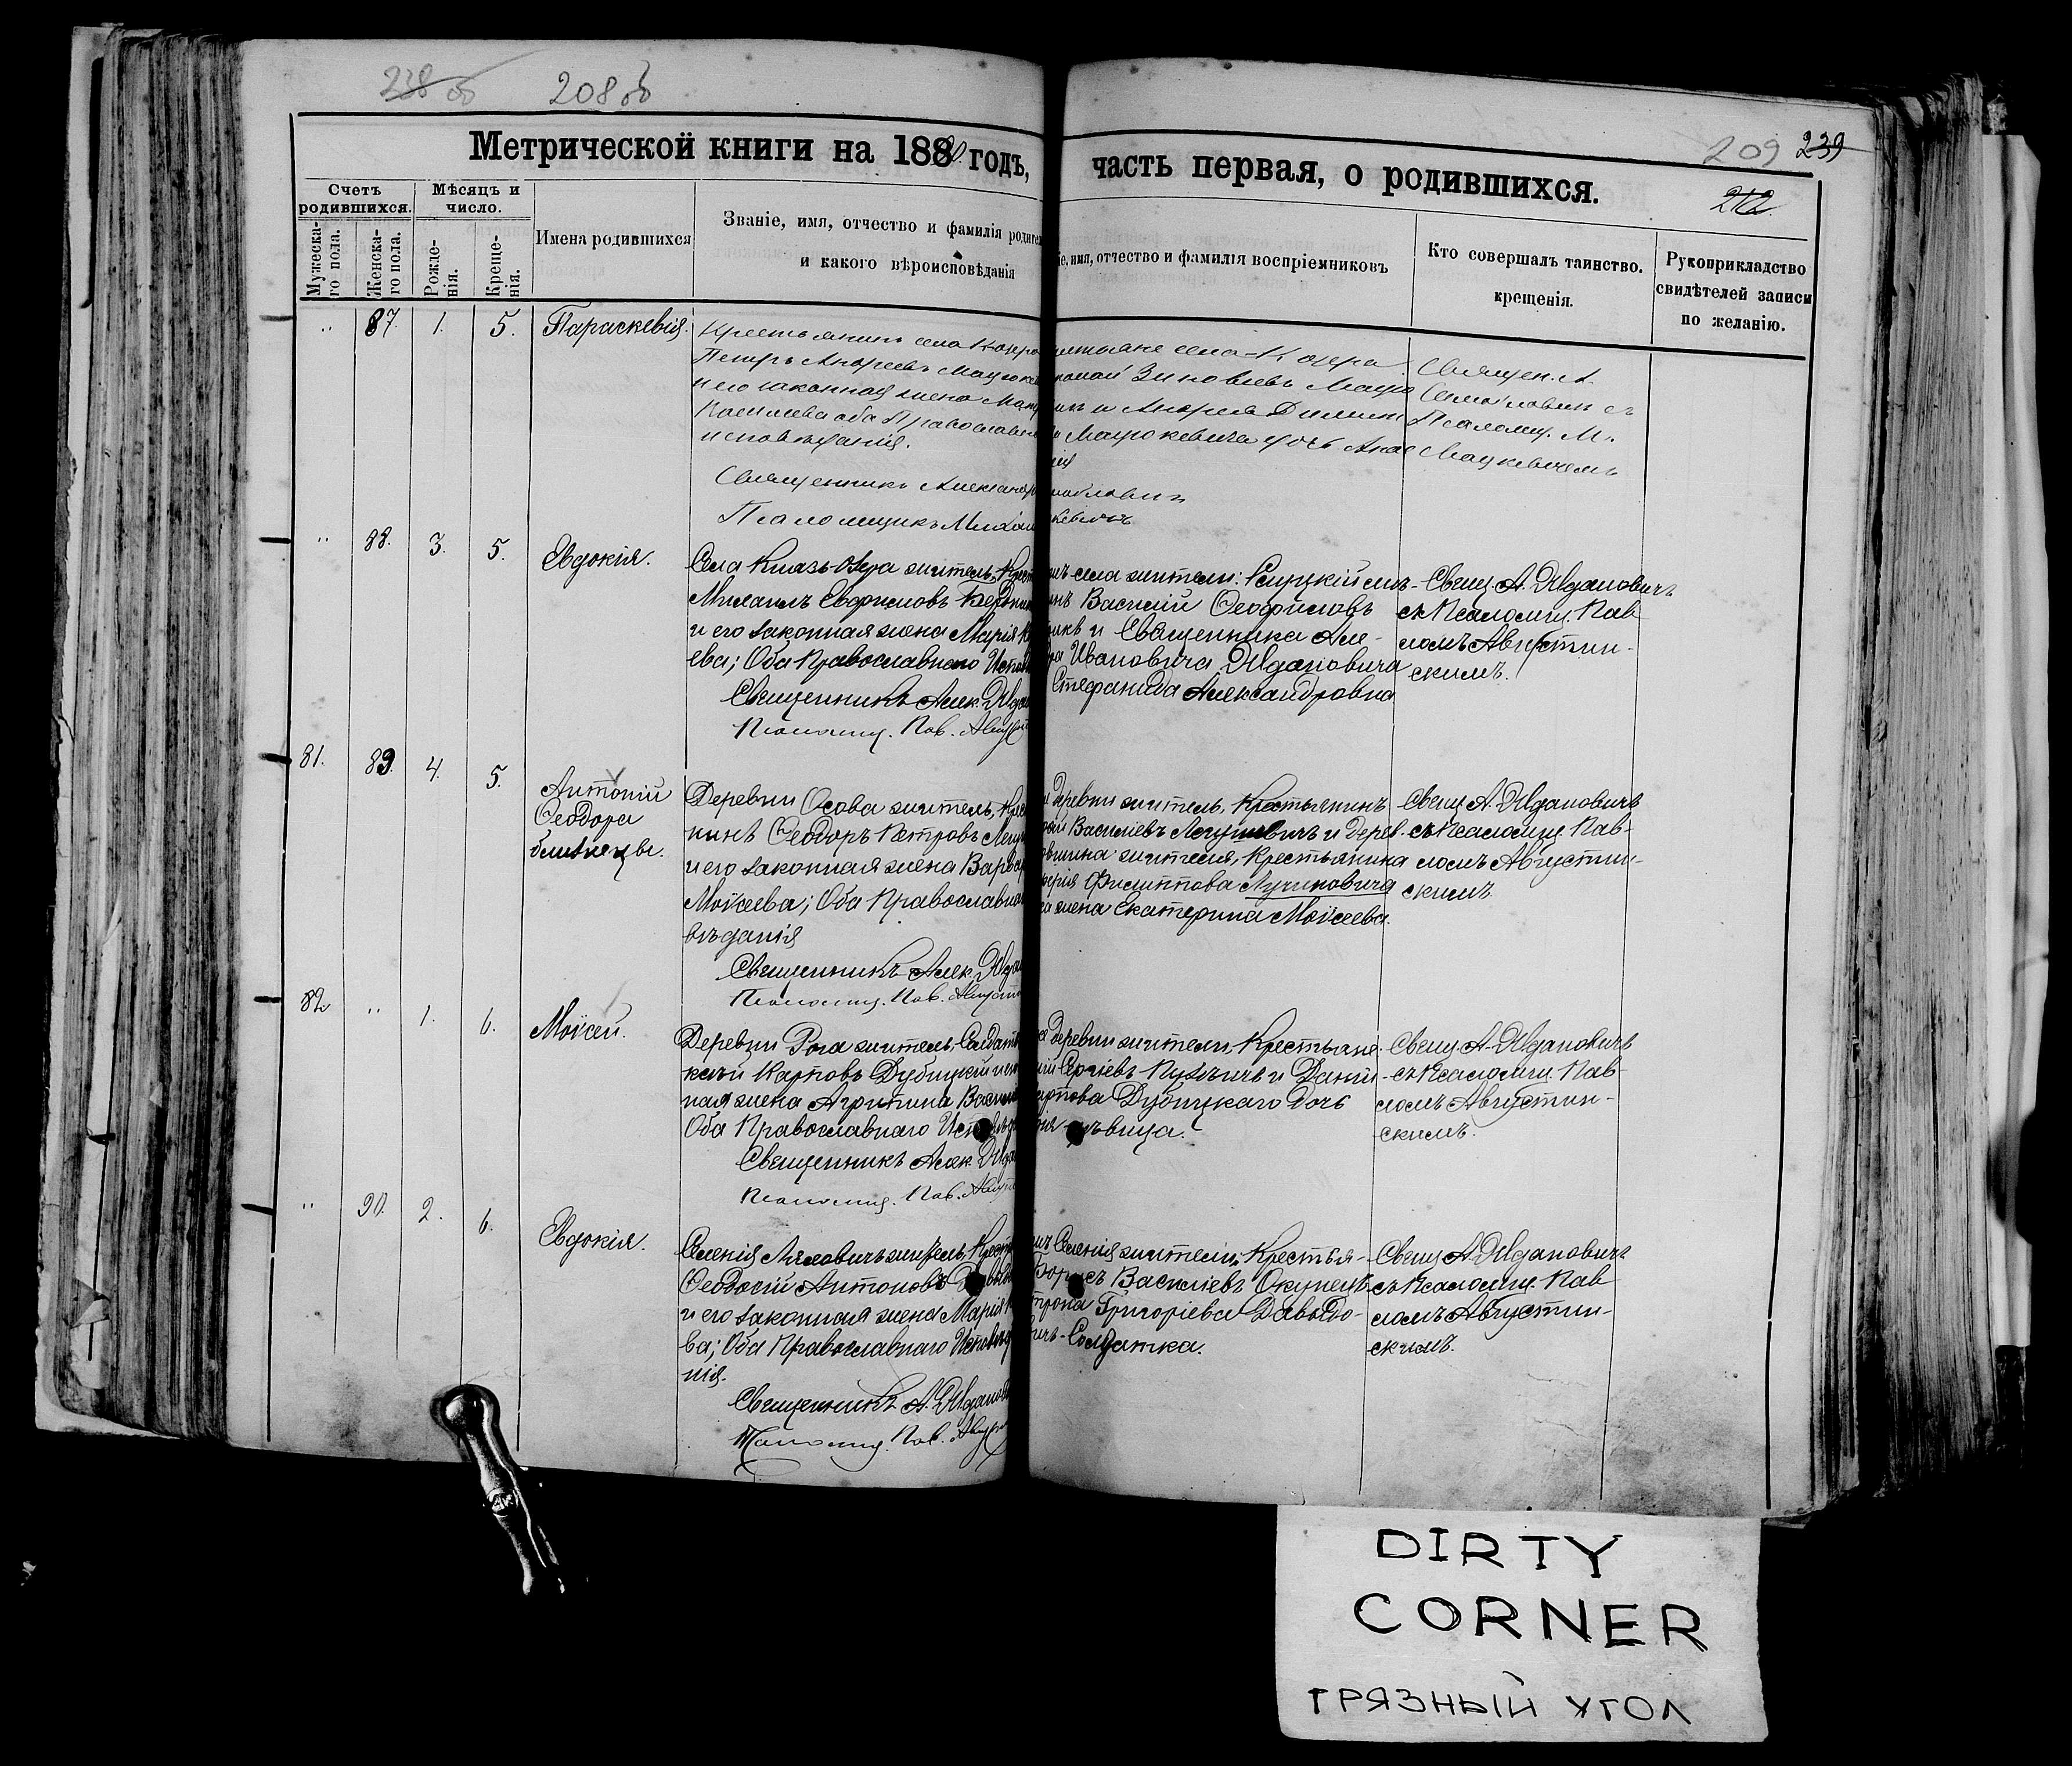 238 об 208 об
209 239
212.
Метрической книги на 1880 годъ, часть первая, о родившихся.
Счетъ родившихся.
Мѣсяцъ и число.
Мужеска-го пола.
Женска-го пола.
Рожде-нія.
Креще-нія.
Имена родившихся
Званіе, имя, отчество и фамилія родител
и какого вѣроисповѣданія
іе, имя, отчество и фамилія воспріемниковъ
Кто совершалъ таинство.
крещенія.
Рукоприкладство
свидѣтелей записи
по желанію.
„ 87. 1. 5. Параскевія.
Крестьянинъ села К-озера
Петръ Андреевъ Мацукев
и его законная жена
Васильева оба Православн
исповѣданія.
Священникъ Александр
Псаломщикъ Михаи
естьяне села-К озера
Зиновіевъ Мацу
и Андрея Димит
Мацукевича дочь Анас
ія
Священ. А.
съ
Псаломщ. М.
Мацкевичемъ
„ 88. 3. 5. Евдокія.
Села Князь-Озера житель, Крест
Михаилъ Евфимовъ
и его законная жена Марія
ева; Оба Православнаго Испов
Священникъ Алек.
Псаломщ. Пав. Август
села жители: Слуцкій мѣ-
нъ Василій Ѳеофиловъ
икъ и Священника Але-
ра Ивановича Ждановича
Стефанида Александровна
Свящ. А. Ждановичъ
съ Псаломщ. Пав-
ломъ Августин-
скимъ.
81. 89. 4. 5. Антоній
Ѳеодора
близнецы.
Деревни Осова житель, Крес
нинъ Ѳеодоръ Петровъ
и его законная жена Варвар
Моѵсеева; Оба Православна
вѣданія
Священникъ Алек. Жда
Псаломщ. Пав. Август
деревни житель, Крестьянинъ
Василіевъ и дерев.
вшина жителя, Крестьянина
ерія Филиппова Лучиновича
жена Екатерина Моѵсеева.
Свящ. А. Ждановичъ
съ Псаломщ. Пав-
ломъ Августин-
скимъ
82. „ 1. 6. Моѵсей.
Деревни Рога житель, Солдатъ
Карповъ Дубицкій и
ная жена Агрипина Васи
Оба Православнаго Исповѣд
Священникъ Алек. Жда
Псаломщ. Пав. Август
деревни жители, Крестьяне:
Сергіевъ и Данiи-
арпова Дубицкаго дочь
дѣвица.
Свящ. А. Ждановичъ
съ Псаломщ. Пав-
ломъ Августин-
скимъ.
„ 90. 2. 6. Евдокія.
Селенія Ляховичъ житель, Крест
Ѳеодосій Антоновъ
и его законная жена Марія
ва; Оба Православнаго Исповѣд
нія.
Священникъ А. Жданов
Псаломщ. Пав. Август
Селенія жители, Крестья-
Борисъ Василіевъ Окунецъ
трона Григоріева Давыдо-
вичъ-Солдатка.
Свящ. А. Ждановичъ
съ Псаломщ. Пав-
ломъ Августин-
скимъ.
DIRTY
CORNER
ГРЯЗНЫЙ УГОЛ